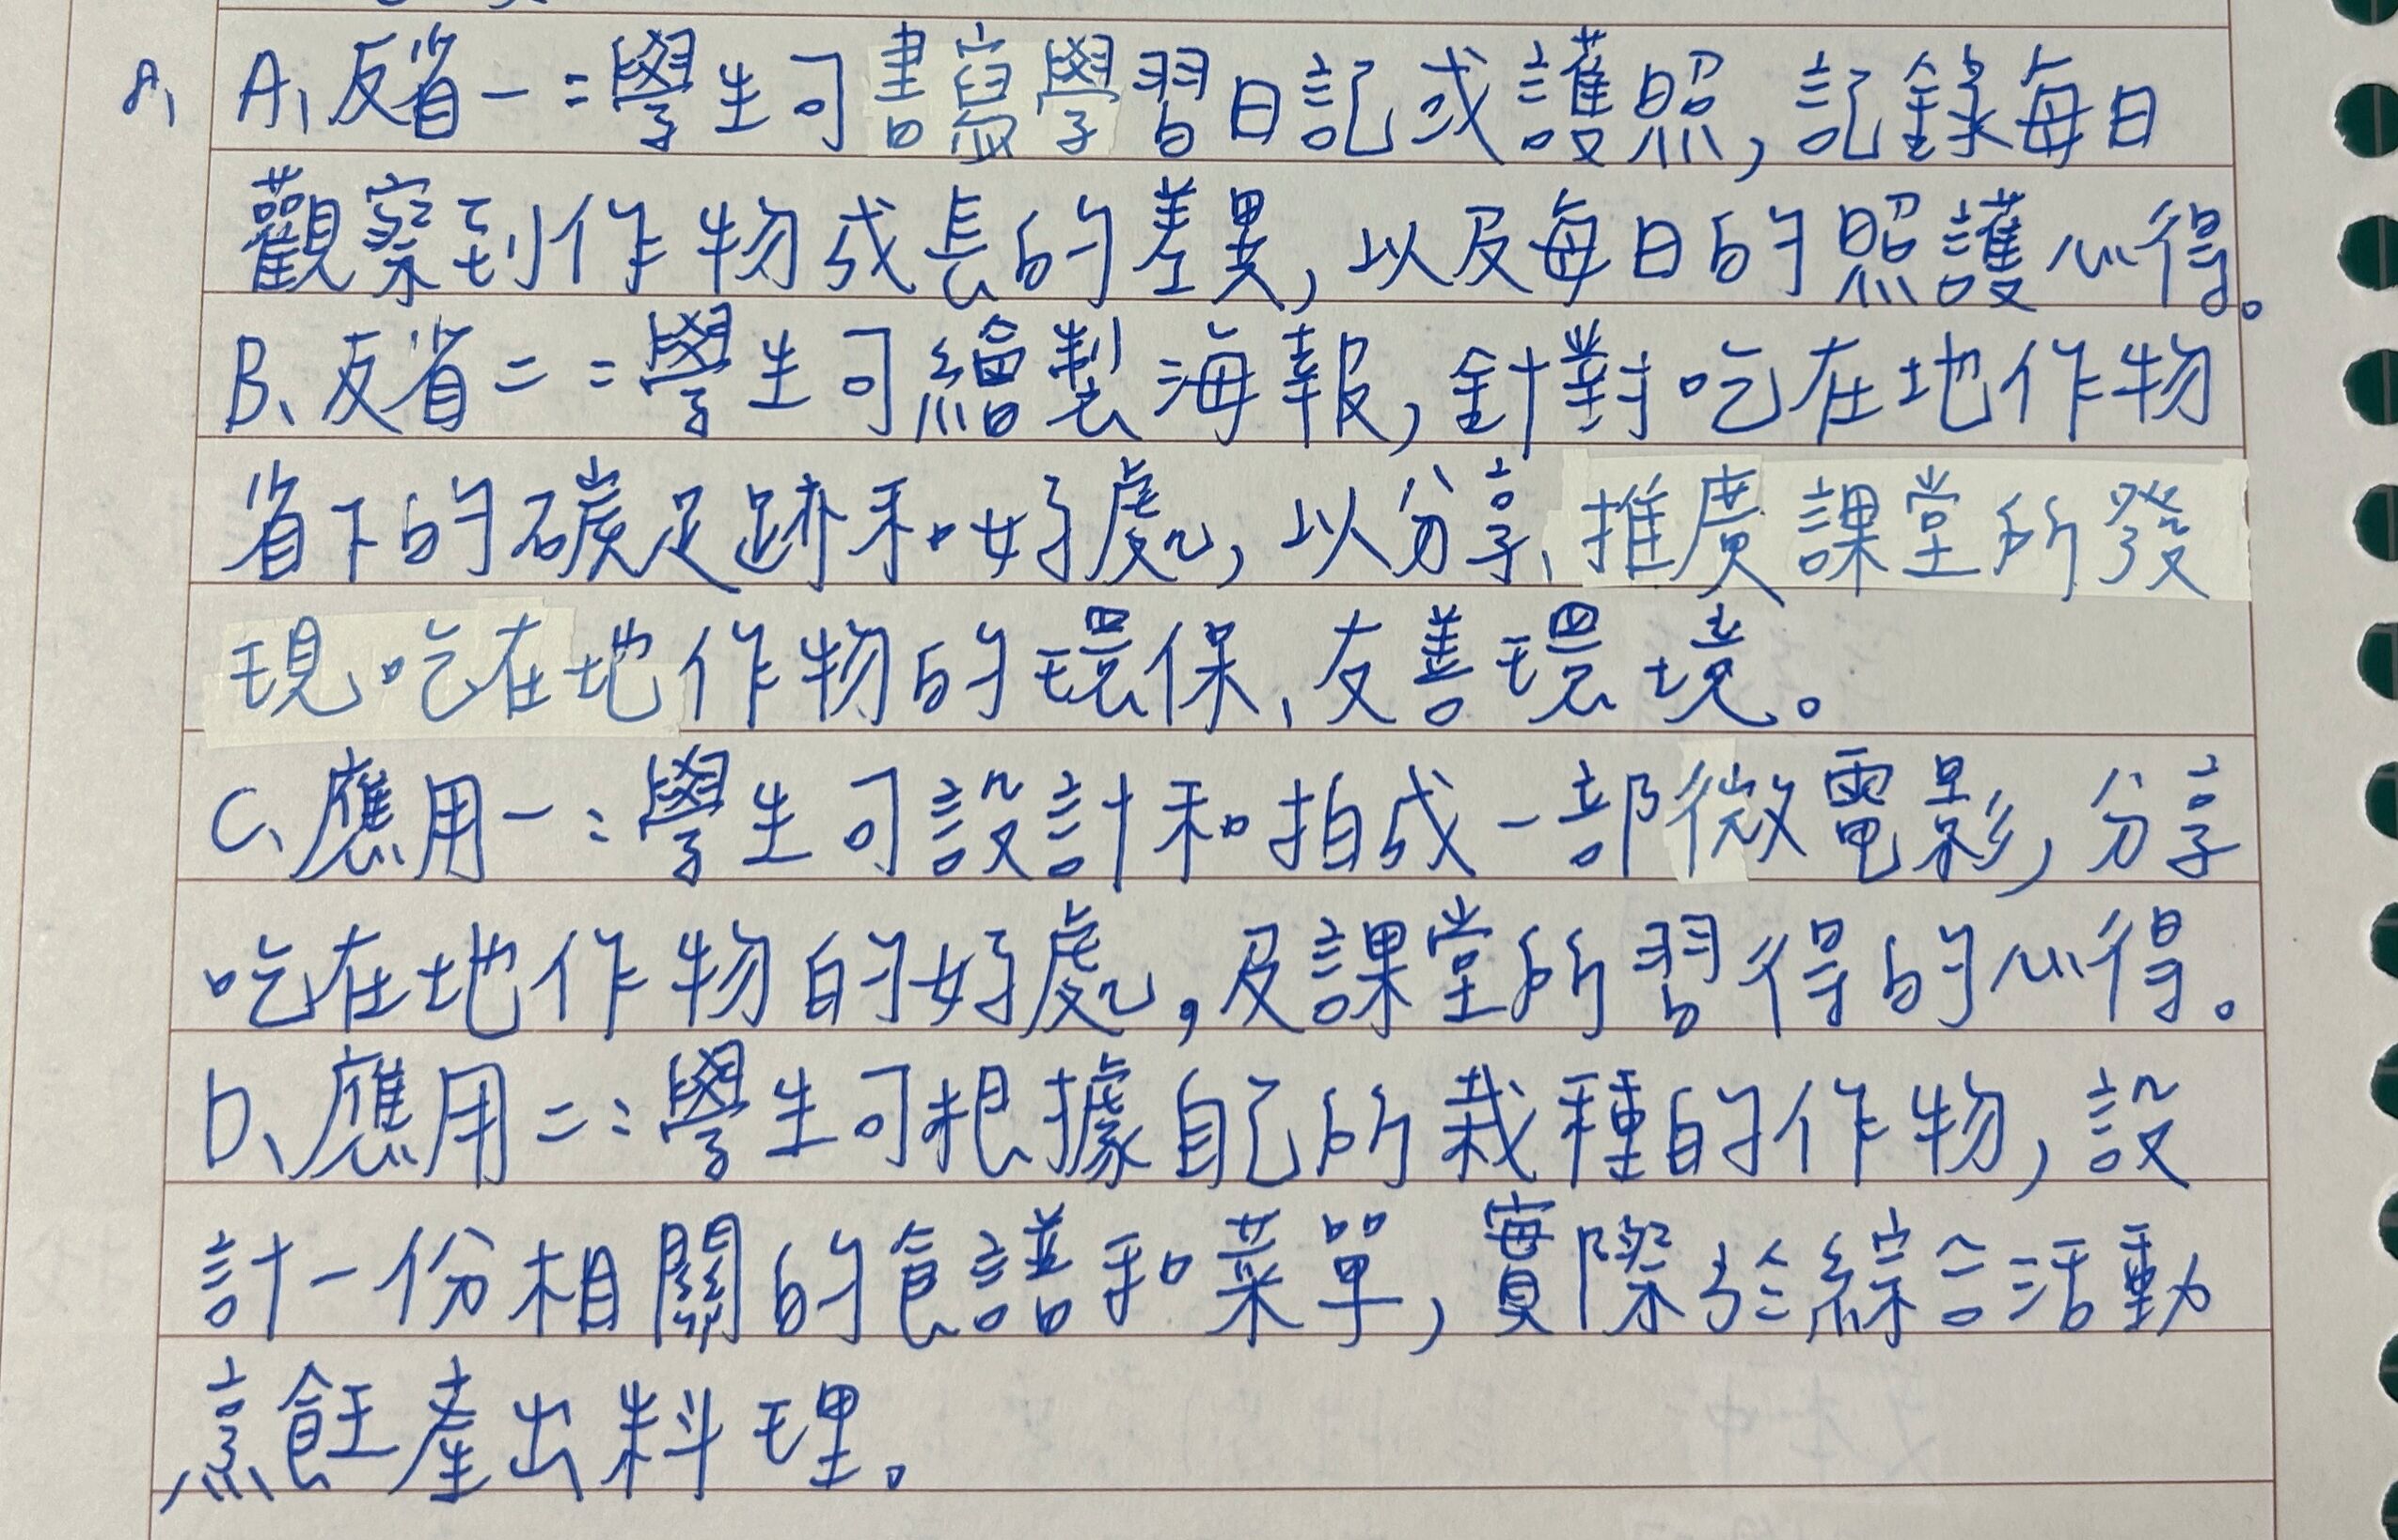 8、A、反省一：學生可書寫學習日記或護照，記錄每日
觀察到作物成長的差異，以及每日的照護心得。
B、反省二：學生可繪製海報，針對吃在地作物
省下的碳足跡和好處，以分享、推廣課堂所發
現吃在地作物的環保、友善環境。
C、應用一：學生可設計和拍成一部微電影，分享
吃在地作物的好處，及課堂所習得的心得。
D、應用二：學生可根據自己所栽種的作物，設
計一份相關的食譜和菜單，實際於綜合活動
烹飪產出料理。